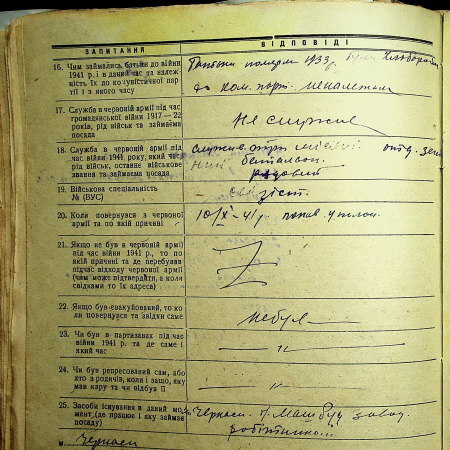 ЗАПИТАННЯ ВІДПОВІДІ
16. Чим займались батьки до війни
1941 р. і в даний час та належ-
ність їх до комуністичної пар-
тії і з якого часу
Батьки померли 1933 р. були хлібороби
до ком. парт. неналежали
17. Служба в червоній армії під час
громадянської війни 1917—22
років, рід військ та займаєма
посада
не служив
18. Служба в червоній армії під
час війни 1941 року, який час,
рід військ, останнє військове
звання та займаєма посада
служив три місяці
батальон.
рядовий
19. Військова спеціальність
№ (ВУС)
20. Коли повернувся з червоної
армії та по якій причині
10/X - 41 р. попав у полон.
21. Якщо не був в червоній армії
під час війни 1941 р., то по
якій причині та де перебував
підчас відходу червоної армії
(чим може підтвердити, а коли
свідками то їх адреса)
22. Якщо був евакуйований, то ко-
ли повернувся та звідки саме
не був
23. Чи був в партизанах під час
війни 1941 р. та де саме і
який час
— „ —
24. Чи був репресований сам, або
хто з родичів, коли і защо, яку
мав кару та чи відбув її
— „ —
25. Засоби існування в даний мо-
мент (де працює і яку займає
посаду)
Черкаси. Машбуд завод.
робітником
м. Черкаси